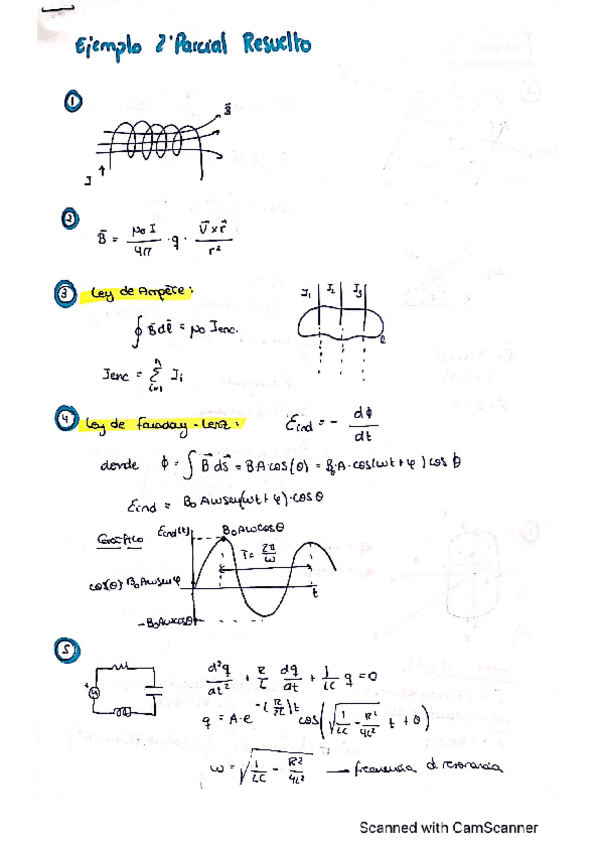 Ejemplo 2º Parcial Resuelto
1
B⃗
I
2
B⃗ = μ₀ I / 4π · q · V⃗ x r⃗ / r²
3 Ley de Ampère:
I₁ I₂ I₃
∮ B⃗ dl⃗ = μ₀ Ienc.
Ienc = Σ Iᵢ
n
i=1
4 Ley de Faraday-Lenz: Ɛind = - dϕ / dt
donde ϕ = ∫ B⃗ ds⃗ = B A cos(θ) = B₀ A · cos(ωt + φ) cos θ
Ɛind = B₀ A ω sen(ωt + φ) · cos θ
Gráfico Ɛind(t) B₀Aωcosθ
T = 2π / ω
cos(θ) B₀Aωsenφ
t
-B₀Aωcosθ
5
d²q / dt² + R / L dq / dt + 1 / LC q = 0
q = A · e^-(R/2L)t cos(√(1/LC - R²/4L²) t + θ)
ω = √(1/LC - R²/4L²) → frecuencia d resonancia
Scanned with CamScanner